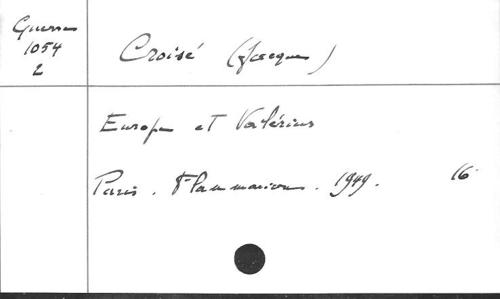 Guerre
1054
2
Croisé (Jacques)
Europe et Valérius
Paris. Flammarion. 1949. 16